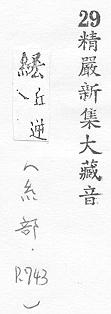 29精嚴新集大藏音
丘逆
(糸部.
P.943
)